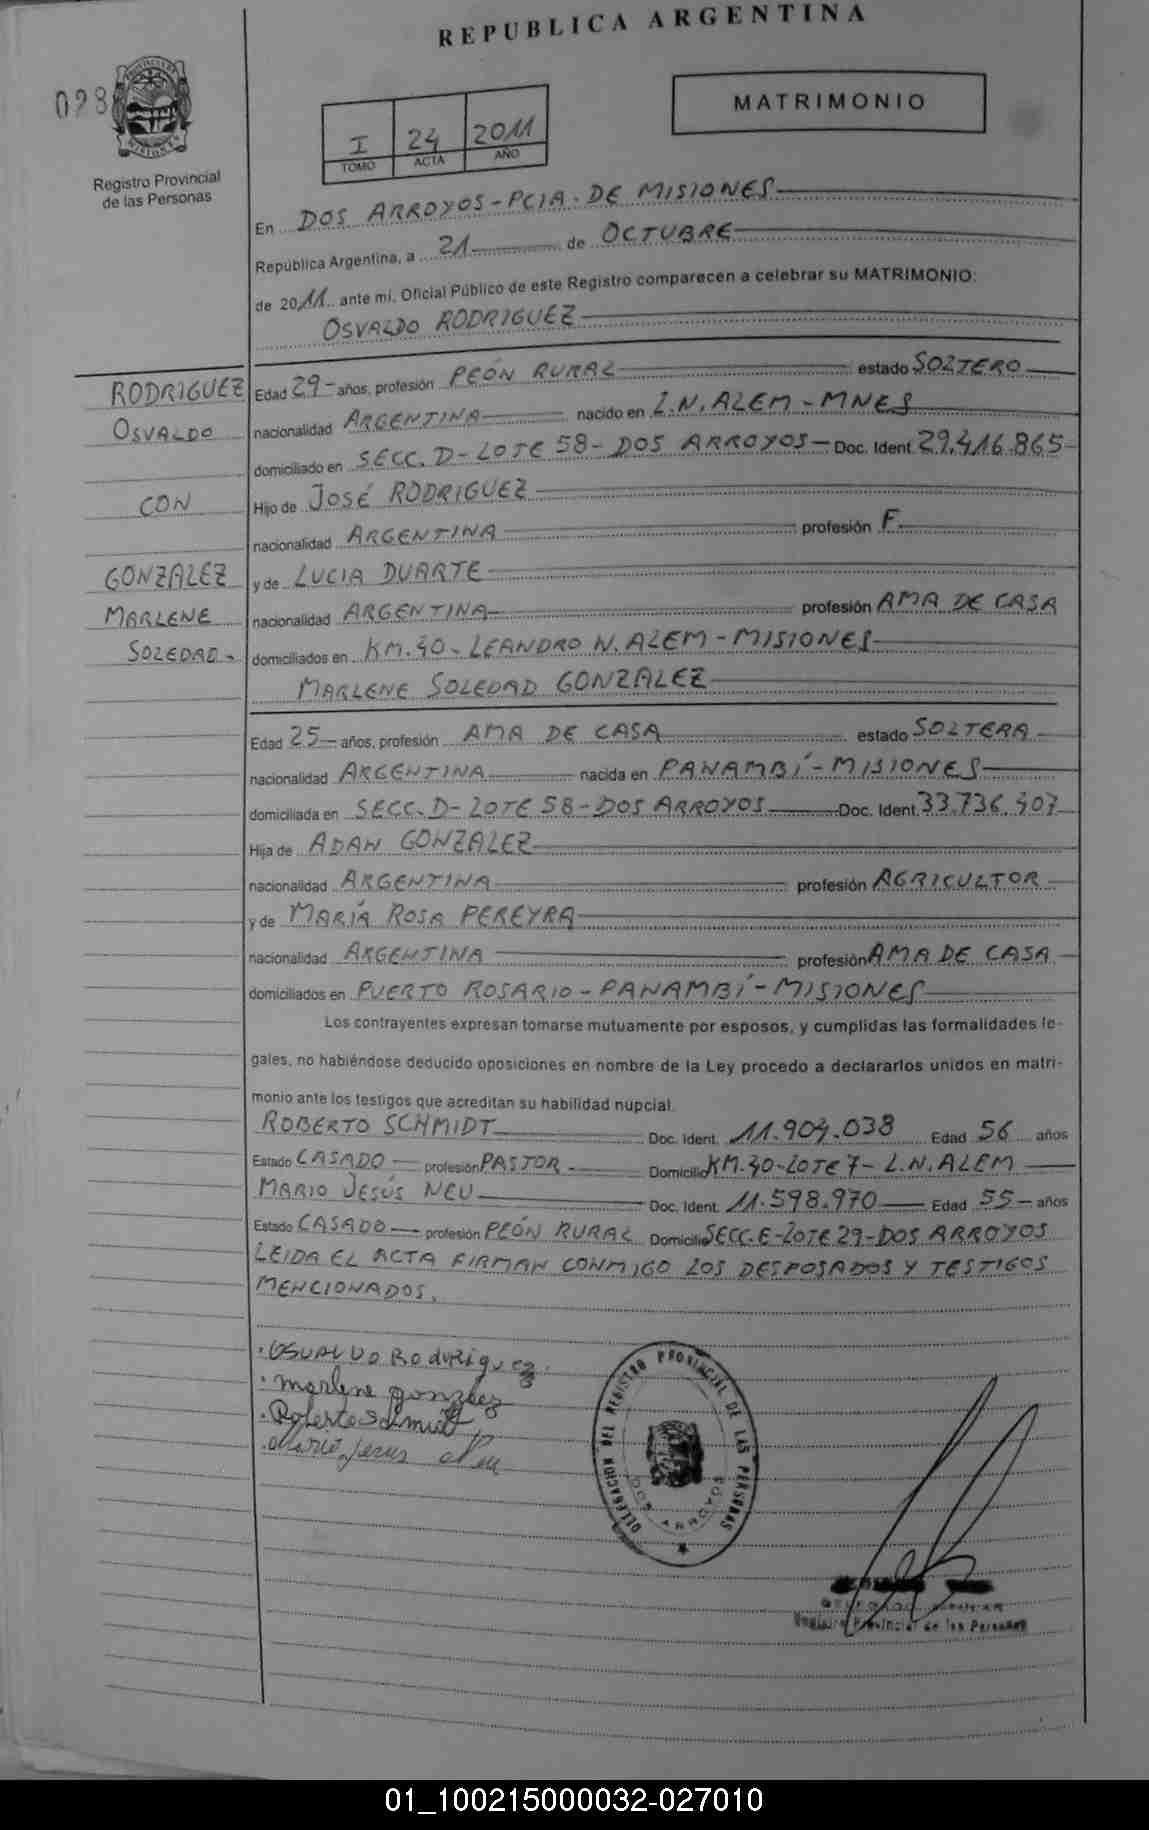 REPUBLICA ARGENTINA
028
MATRIMONIO
I 24 2011
TOMO ACTA AÑO
Registro Provincial
de las Personas
En DOS ARROYOS - PCIA. DE MISIONES
Republica Argentina, a 21 de OCTUBRE
de 2011 ante mi, Oficial Público de este Registro comparecen a celebrar su MATRIMONIO:
OSVALDO RODRIGUEZ
RODRIGUEZ
OSVALDO
CON
GONZALEZ
MARLENE
SOLEDAD.
Edad 29 - años, profesión PEÓN RURAL estado SOLTERO
nacionalidad ARGENTINA nacido en L.N. ALEM - MNES
domiciliado en SECC. D - LOTE 58 - DOS ARROYOS - Doc. Ident. 29.416.865
Hijo de JOSÉ RODRIGUEZ
nacionalidad ARGENTINA profesión F.
y de LUCIA DUARTE
nacionalidad ARGENTINA profesión AMA DE CASA
domiciliados en KM. 40 - LEANDRO N. ALEM - MISIONES
MARLENE SOLEDAD GONZALEZ
Edad 25 - años, profesión AMA DE CASA estado SOLTERA
nacionalidad ARGENTINA nacida en PANAMBÍ - MISIONES
domiciliada en SECC. D - LOTE 58 - DOS ARROYOS Doc. Ident. 33.736.407
Hija de ADAN GONZALEZ
nacionalidad ARGENTINA profesión AGRICULTOR
y de MARÍA ROSA PEREYRA
nacionalidad ARGENTINA profesión AMA DE CASA
domiciliados en PUERTO ROSARIO - PANAMBÍ - MISIONES
Los contrayentes expresan tomarse mutuamente por esposos, y cumplidas las formalidades le-
gales, no habiéndose deducido oposiciones en nombre de la Ley procedo a declararlos unidos en matri-
monio ante los testigos que acreditan su habilidad nupcial.
ROBERTO SCHMIDT Doc. Ident. 11.904.038 Edad 56 años
Estado CASADO profesión PASTOR Domicilio KM. 40 - LOTE 7 - L.N. ALEM
MARIO JESÚS NEU Doc. Ident. 11.598.970 Edad 55 - años
Estado CASADO profesión PEÓN RURAL Domicilio SECC. E - LOTE 29 - DOS ARROYOS
LEIDA EL ACTA FIRMAN CONMIGO LOS DESPOSADOS Y TESTIGOS
MENCIONADOS.
OSVALDO Rodriguez
marlene gonzalez
Roberto Schmidt
Mario Jesus Neu
DELEGACION DEL REGISTRO PROVINCIAL DE LAS PERSONAS
DOS ARROYOS
Registro Provincial de las Personas
01_100215000032-027010